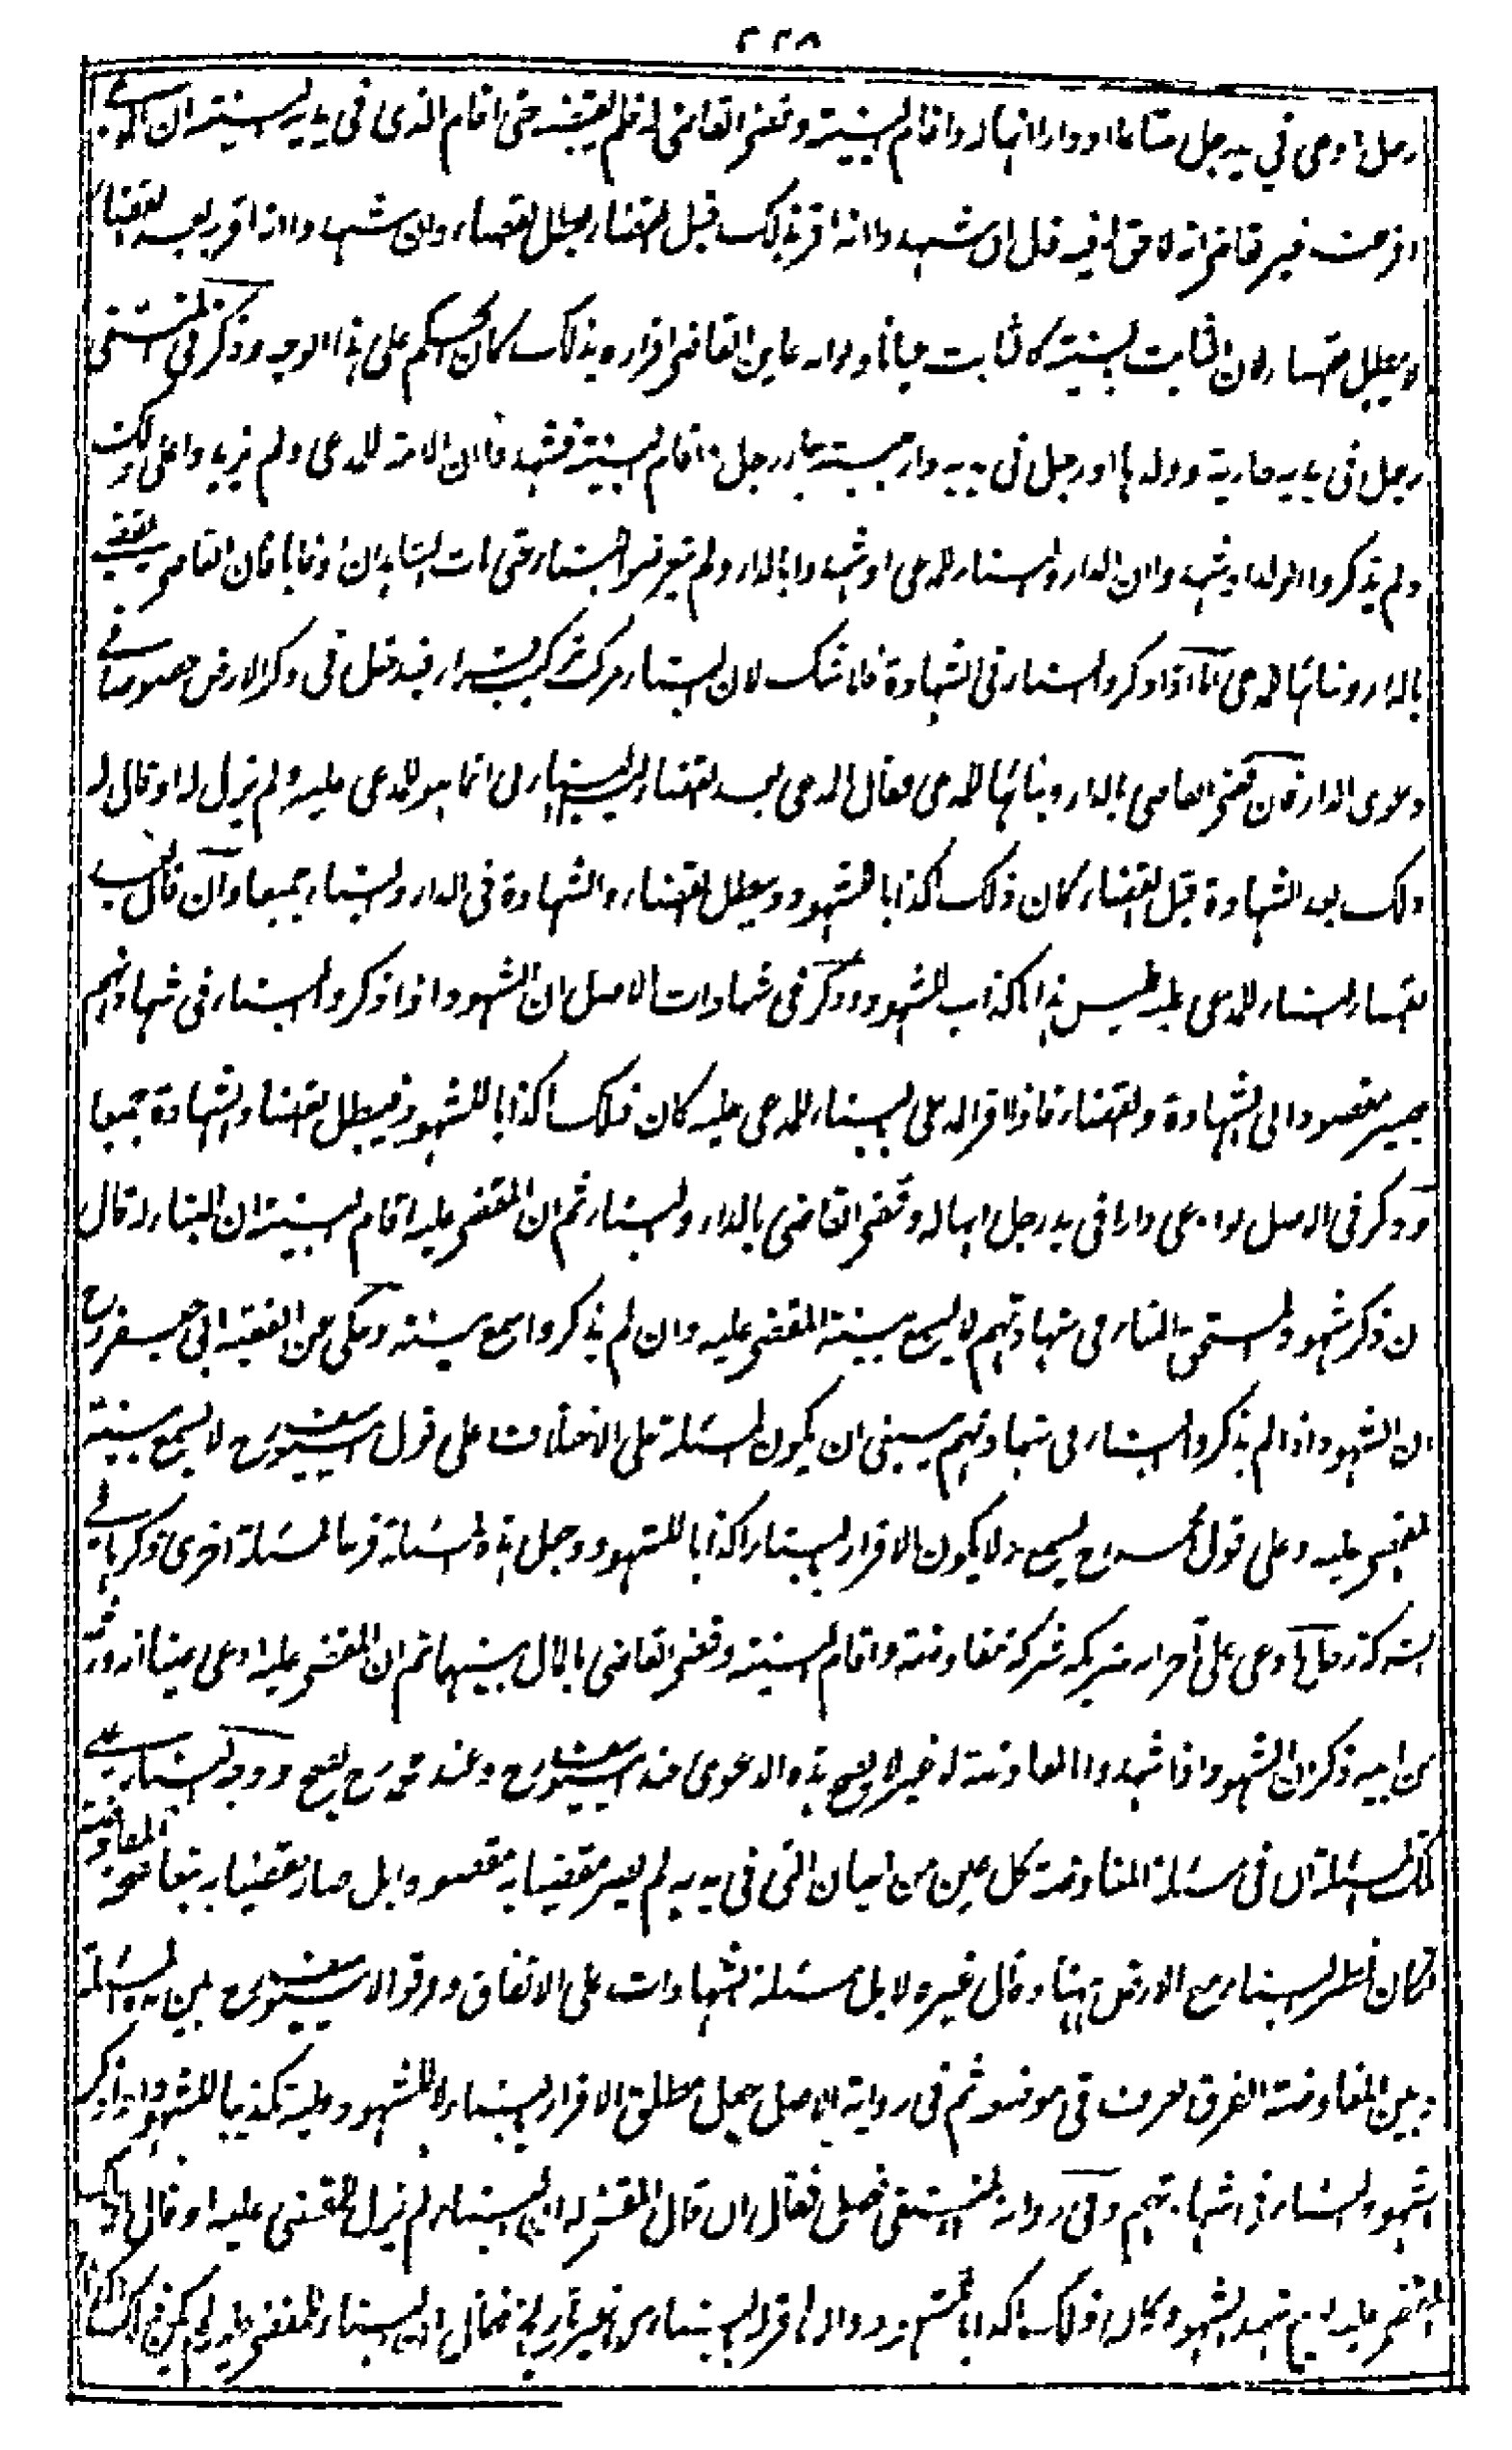 ٢٢٨
رجل ادعى في يد رجل متاعا او دارا انها له واقام البينة وقضى القاضي له فلم يقبضه حتى اقام الذي في يديه البينة ان المدعي
اقر عند غير قاض انه لا حق له فيه قال ان شهدوا انه اقر بذلك قبل القضاء يبطل القضاء وان شهدوا انه اقر بعد القضاء
لا يبطل القضاء لان الثابت بالبينة كالثابت عيانا ولو انه عاين القاضي اقراره بذلك كان الحكم على هذا الوجه وذكر في المنتقى
رجل في يديه جارية وولدها او رجل في يديه دار مبنية جاء رجل واقام البينة فشهدوا ان الامة للمدعي ولم يزيدوا على ذلك
ولم يذكروا الولد او شهدوا ان الدار والبناء للمدعي او شهدوا بالدار ولم يتعرضوا للبناء حتى مات الشاهدان او غابا فان القاضي يقضي
بالدار وبنائها للمدعي اما اذا ذكروا البناء في الشهادة فلا شك لان البناء مركب تركيب قرار فيدخل في ذكر الارض خصوصا في
دعوى الدار فان قضى القاضي بالدار وبنائها للمدعي فقال المدعي بعد القضاء ليس البناء لي انما هو للمدعى عليه ولم يزل له او قال له
ذلك بعد الشهادة قبل القضاء كان ذلك اكذابا للشهود ويبطل القضاء والشهادة في الدار والبناء جميعا وان قال بعد
القضاء البناء للمدعى عليه فليس هذا باكذاب للشهود وذكر في شهادات الاصل ان الشهود اذا ذكروا البناء في شهادتهم
يصير مقصودا في الشهادة والقضاء فاذا اقر المدعي بالبناء للمدعى عليه كان ذلك اكذابا للشهود فيبطل القضاء والشهادة جميعا
وذكر في الاصل لو ادعى دارا في يد رجل انها له وقضى القاضي بالدار والبناء ثم ان المقضي عليه اقام البينة ان البناء له قال
ان ذكر شهود المستحق البناء في شهادتهم لا يسمع بينة المقضي عليه وان لم يذكروا يسمع بينته وحكي عن الفقيه ابي جعفر رح
ان الشهود اذا لم يذكروا البناء في شهادتهم ينبغي ان يكون المسئلة على الاختلاف على قول ابي يوسف رح لا يسمع بينة
المقضي عليه وعلى قول محمد رح يسمع ولا يكون الاقرار بالبناء اكذابا للشهود وجعل هذه المسئلة فرعا لمسئلة اخرى ذكرها في
الشركة رجل ادعى على آخر انه شريكه شركة مفاوضة واقام البينة وقضى القاضي بالمال بينهما ثم ان المقضي عليه ادعى عينا انه ورثه
من ابيه ذكر ان الشهود اذا شهدوا بالمفاوضة لا غير لا يصح هذه الدعوى عند ابي يوسف رح وعند محمد رح يصح ووجه البناء على
تلك المسئلة ان في مسئلة المفاوضة كل عين من اعيان التي في يديه لم يصر مقضيا به مقصودا بل صار مقضيا به تبعا للمفاوضة
فكان نظير البناء مع الارض ههنا وقال غيره لا بل مسئلة الشهادات على الاتفاق وفرقوا لابي يوسف رح بين هذه المسئلة
وبين المفاوضة الفرق يعرف في موضعه ثم في رواية الاصل جعل مطلق الاقرار بالبناء للمشهود عليه تكذيبا للشهود اذا ذكر
الشهود البناء في شهادتهم وفي رواية المنتقى فصل فقال ان قال المقضي له ان البناء لم يزل للمقضي عليه او قال
المقضي عليه شهد الشهود كان ذلك اكذابا للشهود وان اقر بالبناء من غير تاريخ فقال ان البناء للمقضي عليه لم يكن ذلك اكذابا